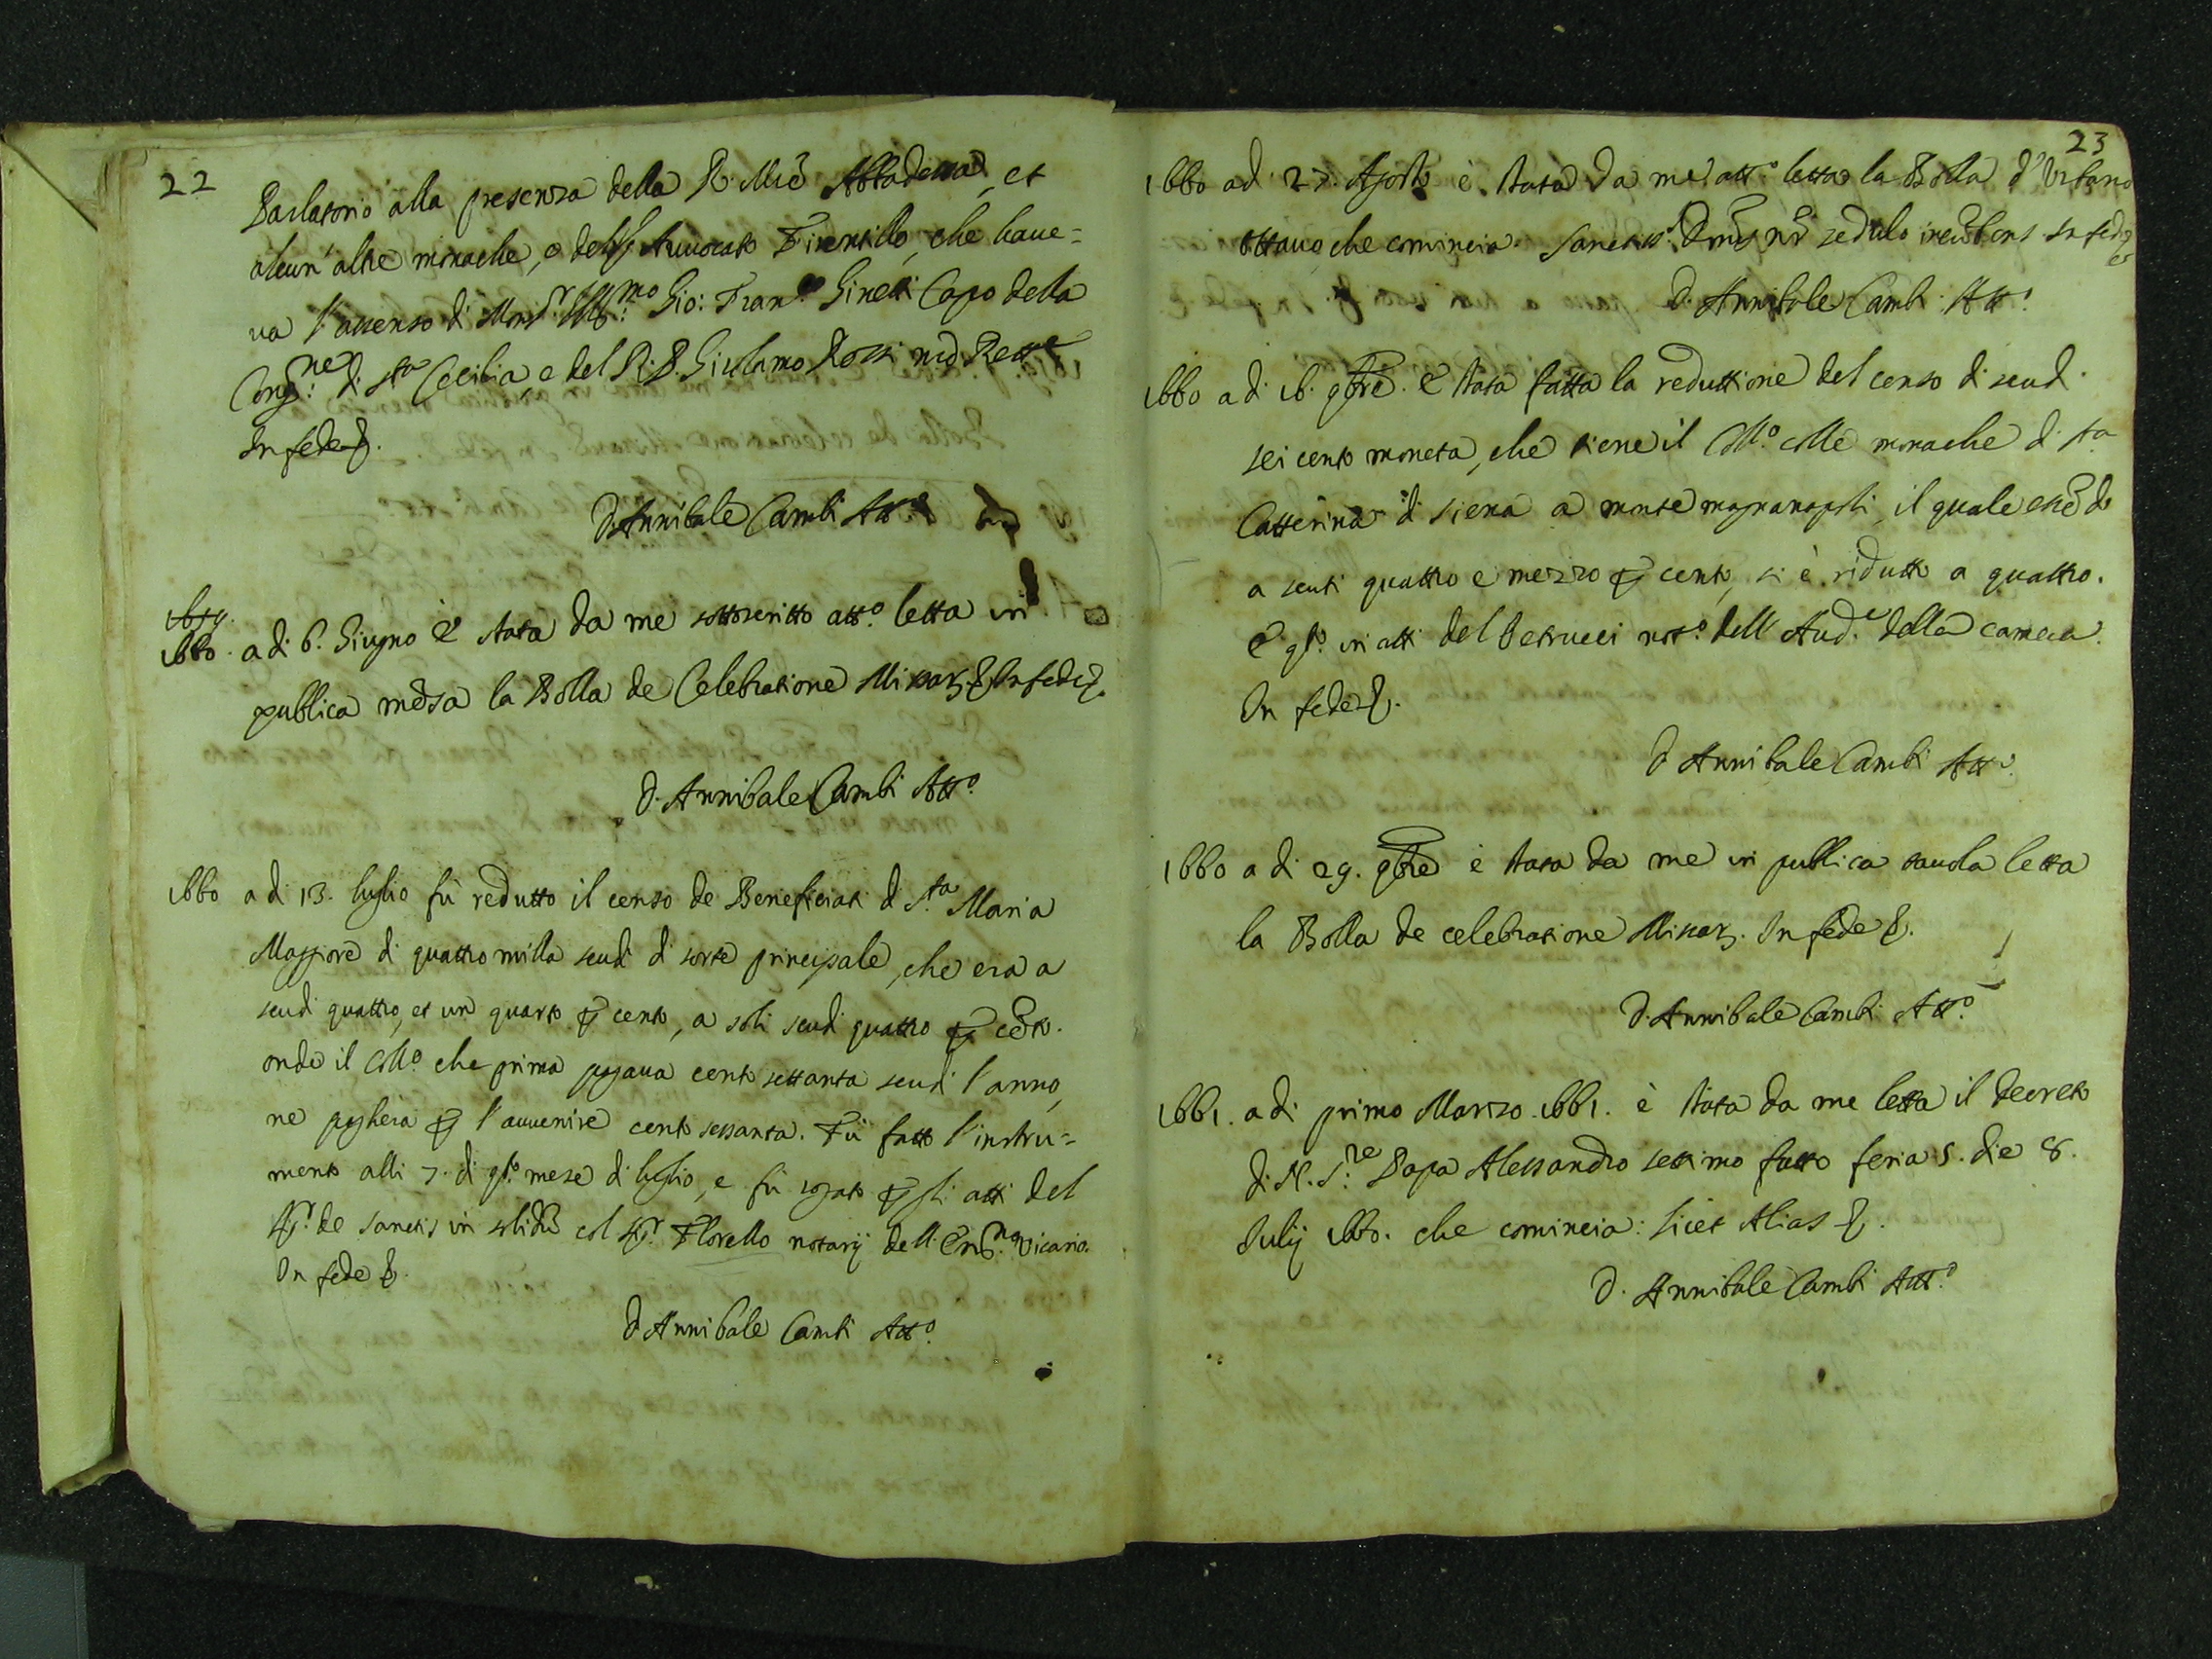 22
Parlatorio alla presenza della R. Mrē Abbadessa, et
alcun' altre monache, e del Sr Avvocato Fiorentillo, che have=
va l'assenso di Monsr. Illmo: Gio: Franco Ginetti Capo della
Congne: di Sta Cecilia, e del R. P. Girolamo Rossi nrō Rettre
In fede &.
D. Annibale Cambi Atto
1659.
1660. a di 6. Giugno è stata da me sottoscritto atto. letta in
publica mēsa la Bolla de Celebratione Missarz. & In fede &.
D. Annibale Cambi Atto.
1660 a di 13. luglio fù redutto il censo de Beneficiati di Sta. Maria
Maggiore di quattro milla scudi di sorte principale, che era a
scudi quattro, et un quarto p cento, a soli scudi quattro p cēto.
onde il Collo che prima pagava cento settanta scudi l'anno,
ne pagherà p l'avvenire cento sessanta. Fù fatto l'instru=
mento alli 7. di qsto mese di luglio, e fù rogato p gli atti del
Sr. de Sanctis in solidū col Sr. Florello notarij dell' Emmo. Vicario.
In fede &.
D Annibale Cambi Atto.
23
1660 a di 27. Agosto è stata da me atto. letta la Bolla d'Urbano
ottavo, che comincia. Sanctiss. Dm̄s nr̄ sedulo incūbens. In fede
&
D. Annibale Cambi Atto.
1660 a di 16. 9bre. è stata fatta la reduttione del censo di scudi
sei cento moneta, che tiene il Collo. colle monache di Sta
Catterina di Siena a monte magnanapoli, il quale essēdo
a scuti quattro e mezzo p cento, si è ridutto a quattro.
e qsto. in atti del Petrucci noto. dell' Aude. della camera.
In fede &.
D Annibale Cambi Atto.
1660 a di 29. 9bre è stata da me in publica tavola letta
la Bolla de celebratione Missarz. In fede &.
D. Annibale Cambi Atto.
1661. a di primo Marzo. 1661. è stata da me letta il decreto
di N. Sre. Papa Alessandro settimo fatto feria 5. die 8.
Julij 1660. che comincia: Licet Alias &.
D. Annibale Cambi Atto.